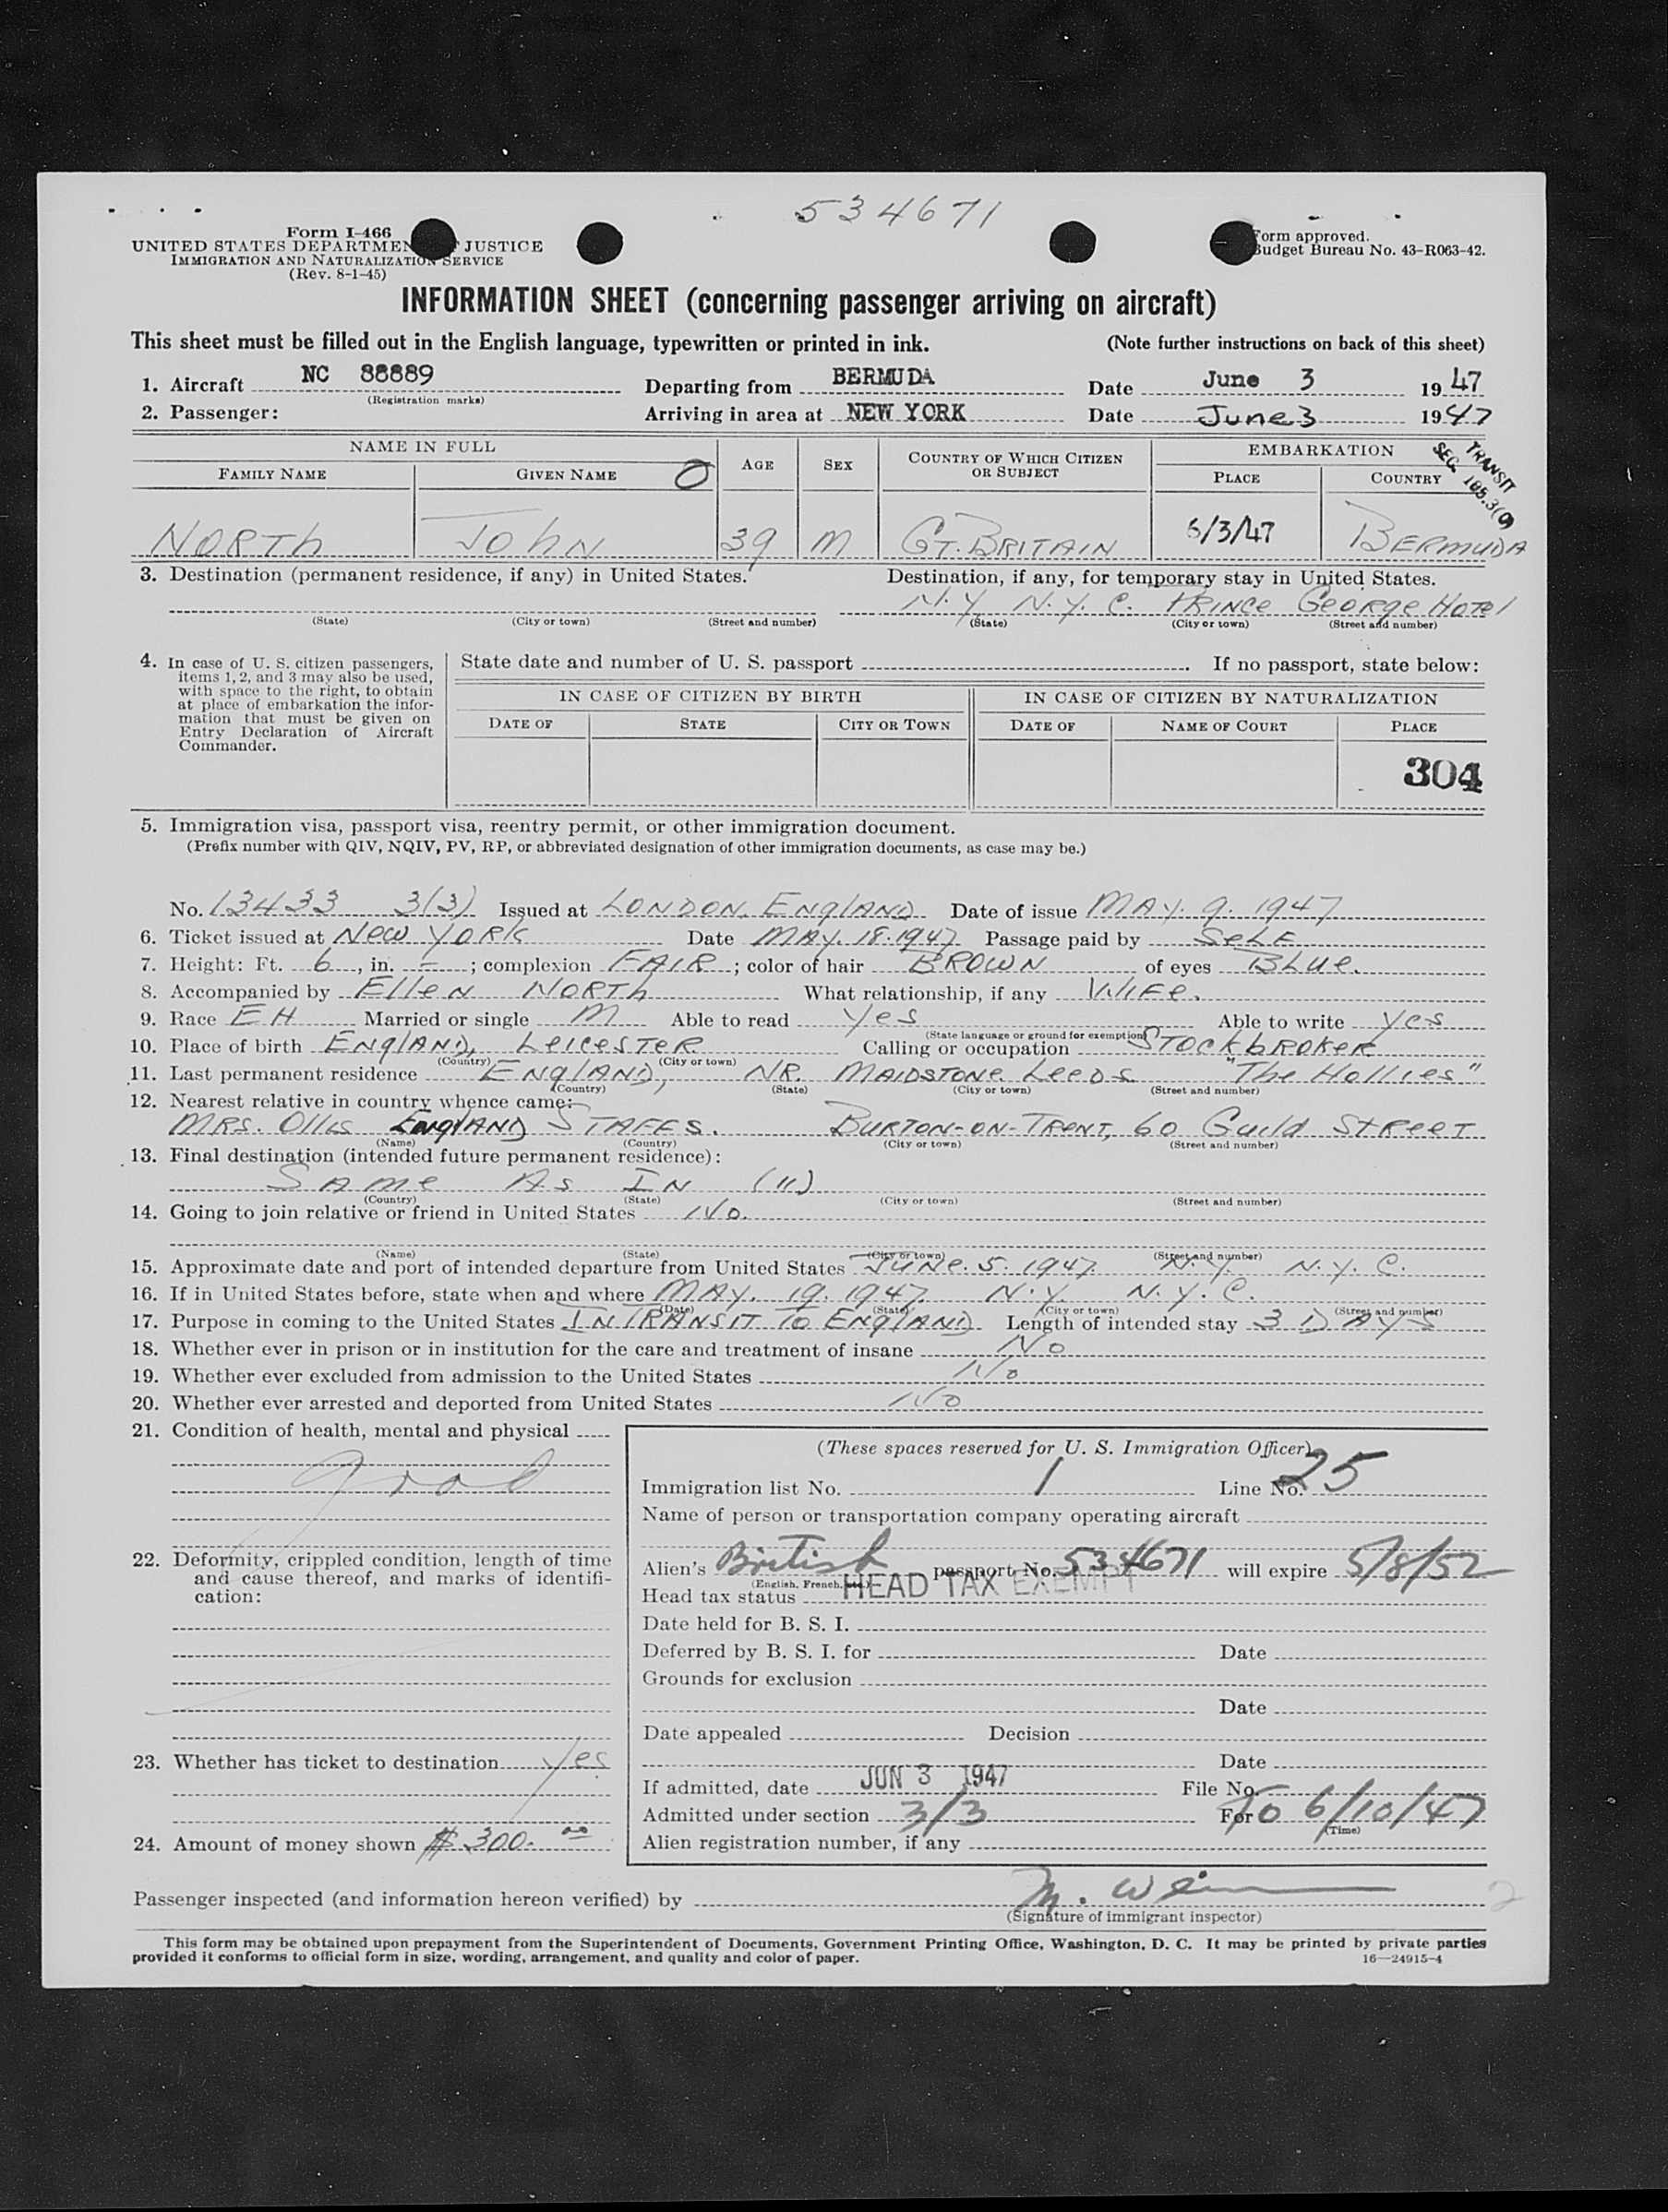 534671
Form I-466
UNITED STATES DEPARTMENT JUSTICE
IMMIGRATION AND NATURALIZATION SERVICE
(Rev. 8-1-45)
Form approved.
Budget Bureau No. 43-R063-42.
INFORMATION SHEET (concerning passenger arriving on aircraft)
This sheet must be filled out in the English language, typewritten or printed in ink. (Note further instructions on back of this sheet)
1. Aircraft NC 88889 Departing from BERMUDA Date June 3 1947
(Registration marks)
2. Passenger: Arriving in area at NEW YORK Date June 3 1947
NAME IN FULL AGE SEX COUNTRY OF WHICH CITIZEN OR SUBJECT EMBARKATION
FAMILY NAME GIVEN NAME O PLACE COUNTRY
TRANSIT
SEC. 195.3(0)
NORTh JOhN 39 M GT. BRITAIN 6/3/47 BERMUDA
3. Destination (permanent residence, if any) in United States. Destination, if any, for temporary stay in United States.
N.Y. N.Y.C. PRINCe GeORge HOTel
(State) (City or town) (Street and number) (State) (City or town) (Street and number)
4. In case of U. S. citizen passengers, items 1, 2, and 3 may also be used, with space to the right, to obtain at place of embarkation the information that must be given on Entry Declaration of Aircraft Commander.
State date and number of U. S. passport . If no passport, state below:
IN CASE OF CITIZEN BY BIRTH IN CASE OF CITIZEN BY NATURALIZATION
DATE OF STATE CITY OR TOWN DATE OF NAME OF COURT PLACE
304
5. Immigration visa, passport visa, reentry permit, or other immigration document.
(Prefix number with QIV, NQIV, PV, RP, or abbreviated designation of other immigration documents, as case may be.)
No. 13433 3(3) Issued at LONDON. ENglAND Date of issue MAY. 9. 1947
6. Ticket issued at New YORK Date MAY. 18. 1947 Passage paid by SeLF
7. Height: Ft. 6, in. -; complexion FAIR; color of hair BROWN of eyes BLue.
8. Accompanied by ElleN NORTh What relationship, if any WIFe.
9. Race EH Married or single M Able to read Yes Able to write Yes
(State language or ground for exemption)
10. Place of birth ENglAND, LeiCeSTeR Calling or occupation STOCkbROKeR
(Country) (City or town)
11. Last permanent residence ENglAND, NR. MAIDSTONe LeeDS "The Hollies"
(Country) (State) (City or town) (Street and number)
12. Nearest relative in country whence came:
MRS. Ollis ENglAND STAFFS. BURTON-ON-TReNT, 60 Guild StReeT
(Name) (Country) (City or town) (Street and number)
13. Final destination (intended future permanent residence):
SAMe AS IN (11)
(Country) (State) (City or town) (Street and number)
14. Going to join relative or friend in United States No.
(Name) (State) (City or town) (Street and number)
15. Approximate date and port of intended departure from United States JUNe. 5. 1947. N.Y. N.Y.C.
16. If in United States before, state when and where MAY. 19. 1947. N.Y. N.Y.C.
(Date) (State) (City or town) (Street and number)
17. Purpose in coming to the United States IN TRANSIT TO ENglAND Length of intended stay 3 DAYS
18. Whether ever in prison or in institution for the care and treatment of insane No
19. Whether ever excluded from admission to the United States No
20. Whether ever arrested and deported from United States No
21. Condition of health, mental and physical
good
22. Deformity, crippled condition, length of time and cause thereof, and marks of identification:
23. Whether has ticket to destination Yes
24. Amount of money shown $300.00
(These spaces reserved for U. S. Immigration Officer)
Immigration list No. 1 Line No. 25
Name of person or transportation company operating aircraft
Alien's British passport No. 534671 will expire 5/8/52
(English, French, etc.)
Head tax status HEAD TAX EXEMPT
Date held for B. S. I.
Deferred by B. S. I. for Date
Grounds for exclusion
Date
Date appealed Decision
Date
If admitted, date JUN 3 1947 File No.
Admitted under section 3/3 For To 6/10/47
(Time)
Alien registration number, if any
Passenger inspected (and information hereon verified) by M.
(Signature of immigrant inspector)
2
This form may be obtained upon prepayment from the Superintendent of Documents, Government Printing Office, Washington, D. C. It may be printed by private parties
provided it conforms to official form in size, wording, arrangement, and quality and color of paper. 16—24915-4